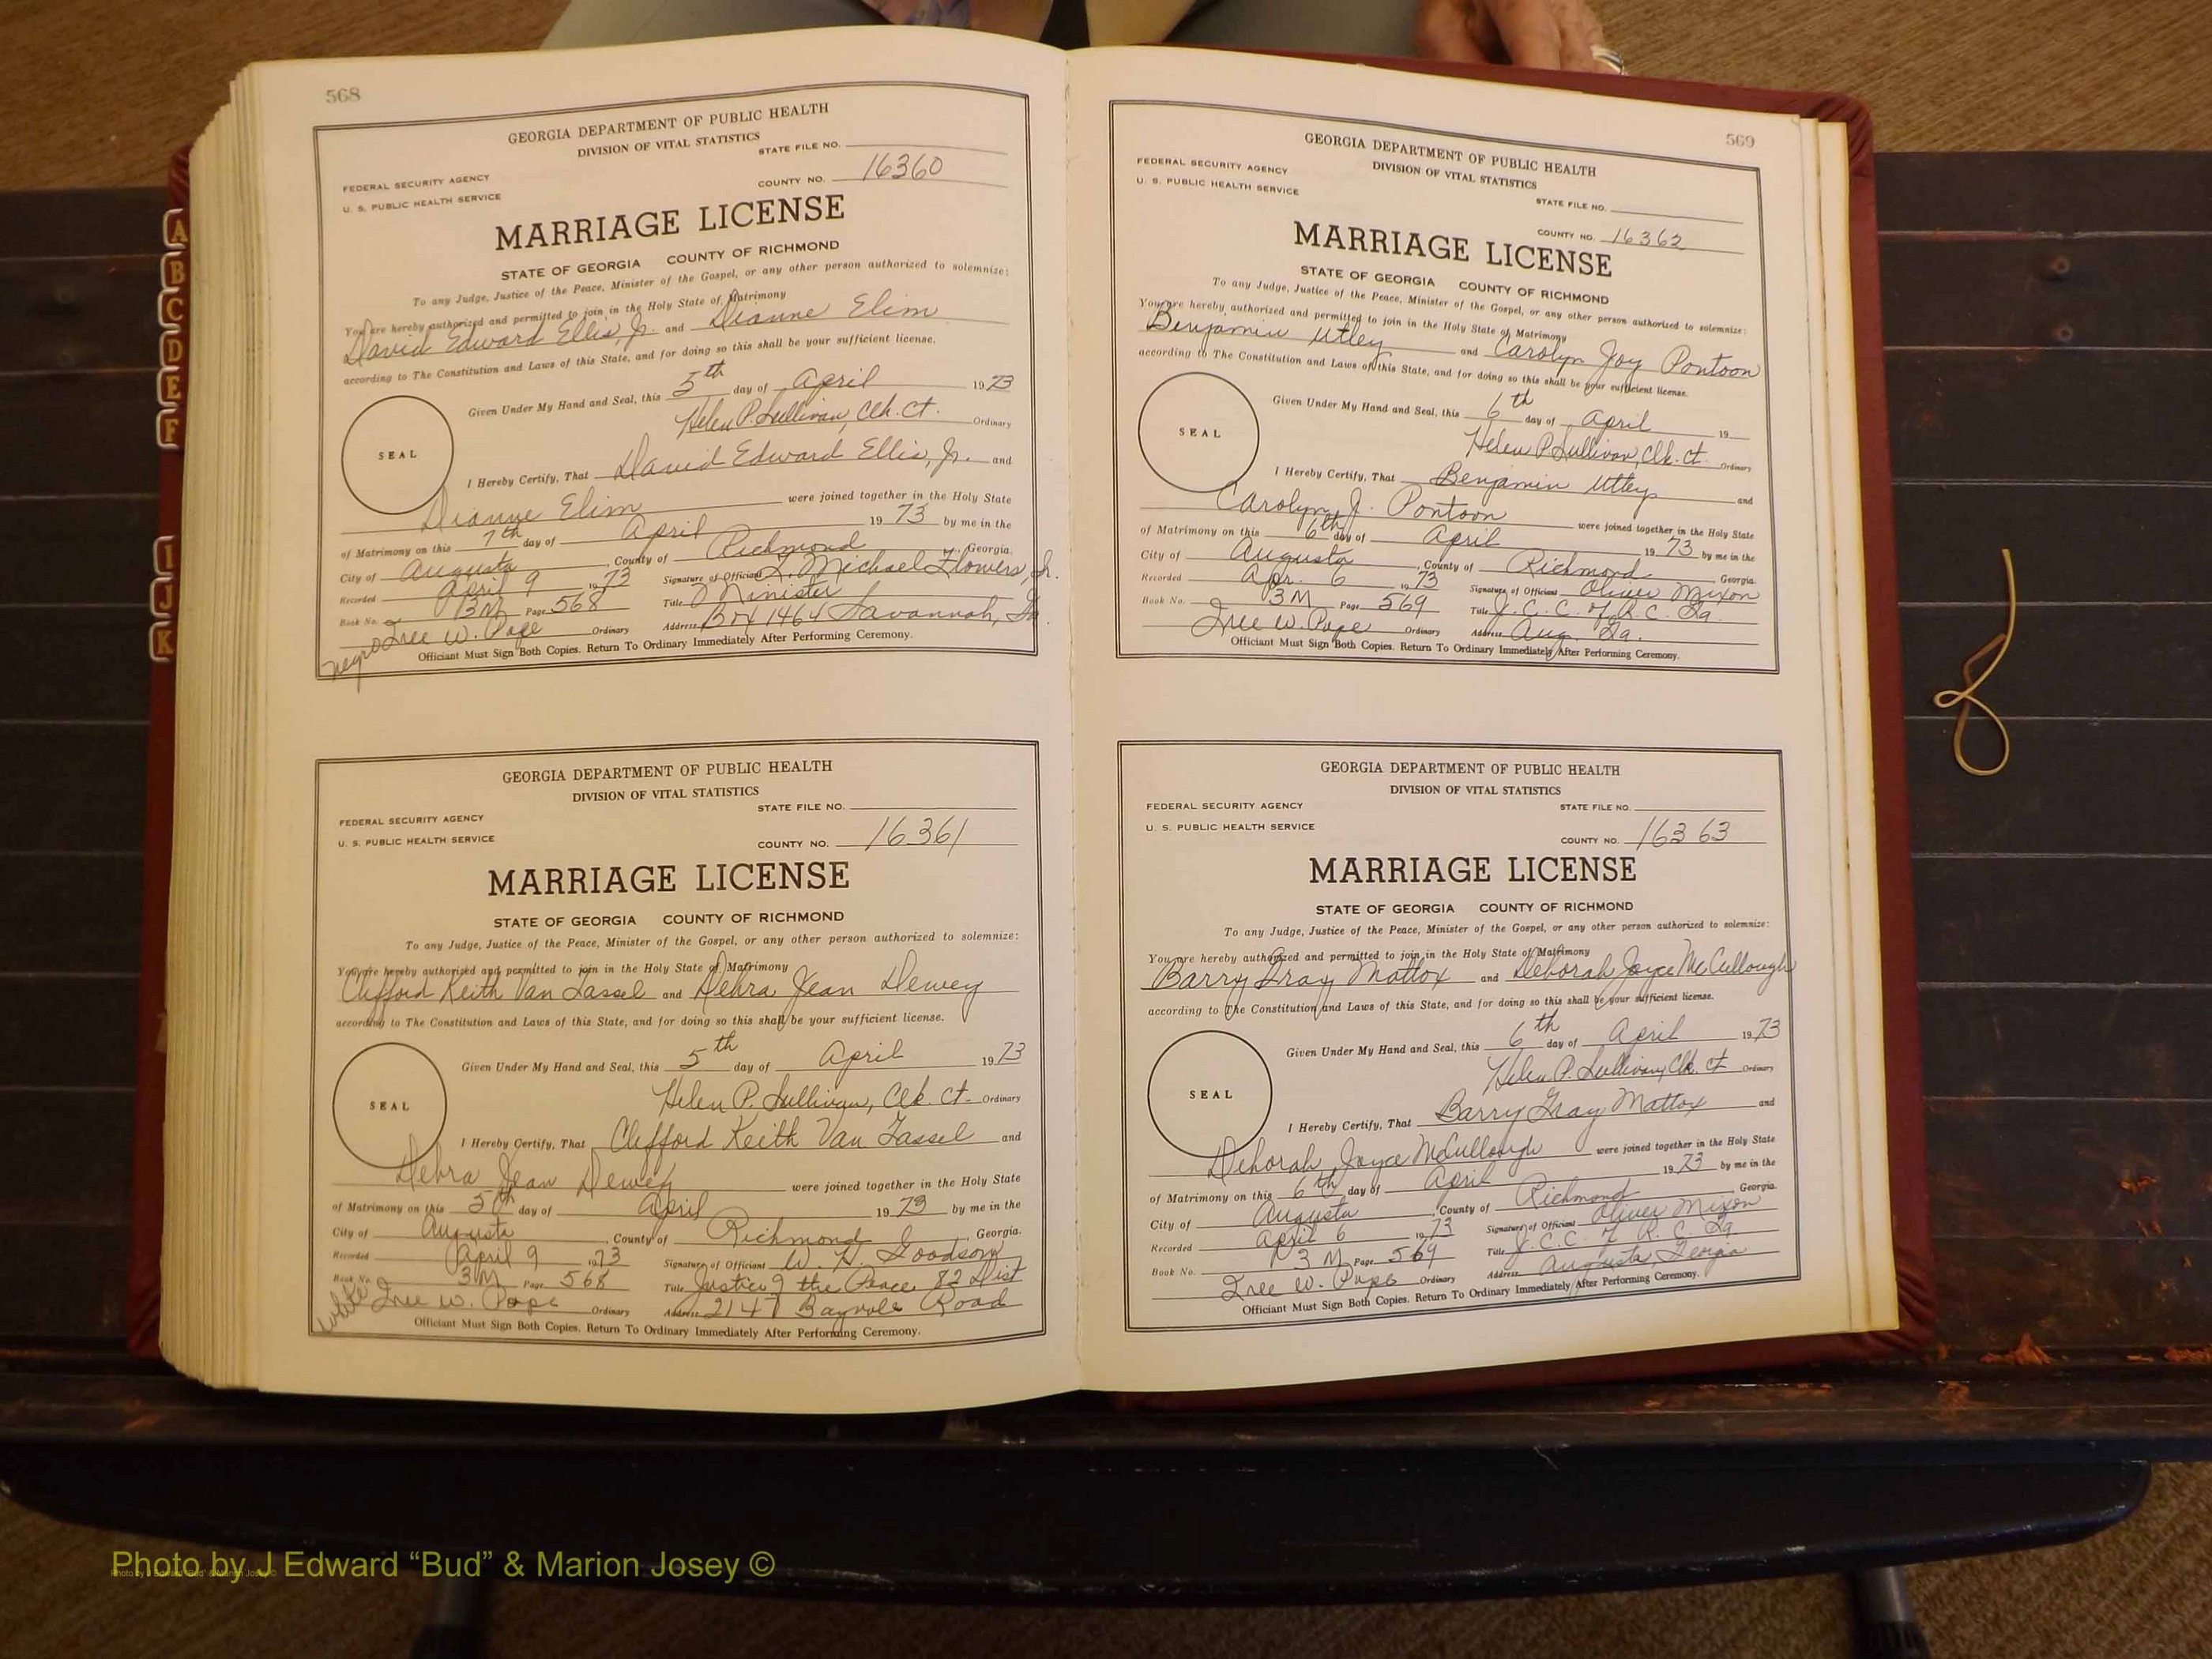 568
GEORGIA DEPARTMENT OF PUBLIC HEALTH
DIVISION OF VITAL STATISTICS
STATE FILE NO.
FEDERAL SECURITY AGENCY
COUNTY NO. 16360
U. S. PUBLIC HEALTH SERVICE
MARRIAGE LICENSE
STATE OF GEORGIA COUNTY OF RICHMOND
To any Judge, Justice of the Peace, Minister of the Gospel, or any other person authorized to solemnize:
You are hereby authorized and permitted to join in the Holy State of Matrimony
David Edward Ellis, Jr. and Dianne Elim
according to The Constitution and Laws of this State, and for doing so this shall be your sufficient license.
Given Under My Hand and Seal, this 5th day of April 1973
Helen P. Sullivan, Clk. Ct. Ordinary
SEAL
I Hereby Certify, That David Edward Ellis, Jr. and
Dianne Elim were joined together in the Holy State
of Matrimony on this 7th day of April 1973 by me in the
City of Augusta, County of Richmond, Georgia.
Recorded April 9 1973 Signature of Official L. Michael Flowers, Sr.
Book No. 3M Page 568 Title Minister
Inee W. Pope Ordinary Address Box 1464 Savannah, Ga.
negro
Officiant Must Sign Both Copies. Return To Ordinary Immediately After Performing Ceremony.
GEORGIA DEPARTMENT OF PUBLIC HEALTH
DIVISION OF VITAL STATISTICS
STATE FILE NO.
FEDERAL SECURITY AGENCY
U. S. PUBLIC HEALTH SERVICE
COUNTY NO. 16361
MARRIAGE LICENSE
STATE OF GEORGIA COUNTY OF RICHMOND
To any Judge, Justice of the Peace, Minister of the Gospel, or any other person authorized to solemnize:
You are hereby authorized and permitted to join in the Holy State of Matrimony
Clifford Keith Van Tassel and Debra Jean Dewey
according to The Constitution and Laws of this State, and for doing so this shall be your sufficient license.
Given Under My Hand and Seal, this 5th day of April 1973
Helen P. Sullivan, Clk. Ct. Ordinary
SEAL
I Hereby Certify, That Clifford Keith Van Tassel and
Debra Jean Dewey were joined together in the Holy State
of Matrimony on this 5th day of April 1973 by me in the
City of Augusta, County of Richmond, Georgia.
Recorded April 9 1973 Signature of Official W. H. Goodson
Book No. 3M Page 568 Title Justice of the Peace 82 Dist
Inee W. Pope Ordinary Address 2147 Bayvale Road
white
Officiant Must Sign Both Copies. Return To Ordinary Immediately After Performing Ceremony.
569
GEORGIA DEPARTMENT OF PUBLIC HEALTH
DIVISION OF VITAL STATISTICS
FEDERAL SECURITY AGENCY
U. S. PUBLIC HEALTH SERVICE
STATE FILE NO.
COUNTY NO. 16362
MARRIAGE LICENSE
STATE OF GEORGIA COUNTY OF RICHMOND
To any Judge, Justice of the Peace, Minister of the Gospel, or any other person authorized to solemnize:
You are hereby authorized and permitted to join in the Holy State of Matrimony
Benjamin Utley and Carolyn Joy Pontoon
according to The Constitution and Laws of this State, and for doing so this shall be your sufficient license.
Given Under My Hand and Seal, this 6th day of April 19
Helen P. Sullivan, Clk. Ct. Ordinary
SEAL
I Hereby Certify, That Benjamin Utley and
Carolyn J. Pontoon were joined together in the Holy State
of Matrimony on this 6th day of April 1973 by me in the
City of Augusta, County of Richmond Georgia.
Recorded Apr. 6 1973 Signature of Official Oliver Mixon
Book No. 3M Page 569 Title J. C. C. of R. C. Ga.
Inee W. Pope Ordinary Address Aug. Ga.
Officiant Must Sign Both Copies. Return To Ordinary Immediately After Performing Ceremony.
GEORGIA DEPARTMENT OF PUBLIC HEALTH
DIVISION OF VITAL STATISTICS
FEDERAL SECURITY AGENCY STATE FILE NO.
U. S. PUBLIC HEALTH SERVICE
COUNTY NO. 16363
MARRIAGE LICENSE
STATE OF GEORGIA COUNTY OF RICHMOND
To any Judge, Justice of the Peace, Minister of the Gospel, or any other person authorized to solemnize:
You are hereby authorized and permitted to join in the Holy State of Matrimony
Barry Gray Mattox and Deborah Joyce McCullough
according to The Constitution and Laws of this State, and for doing so this shall be your sufficient license.
Given Under My Hand and Seal, this 6th day of April 1973
Helen P. Sullivan, Clk. Ct. Ordinary
SEAL
I Hereby Certify, That Barry Gray Mattox and
Deborah Joyce McCullough were joined together in the Holy State
of Matrimony on this 6th day of April 1973 by me in the
City of Augusta, County of Richmond Georgia.
Recorded April 6 1973 Signature of Official Oliver Mixon
Book No. 3M Page 569 Title J. C. C. of R. C. Ga.
Inee W. Pope Ordinary Address Augusta, Georgia
Officiant Must Sign Both Copies. Return To Ordinary Immediately After Performing Ceremony.
A
B
C
D
E
F
I
J
K
Photo by J Edward “Bud” & Marion Josey ©
Photo by J Edward "Bud" & Marion Josey ©